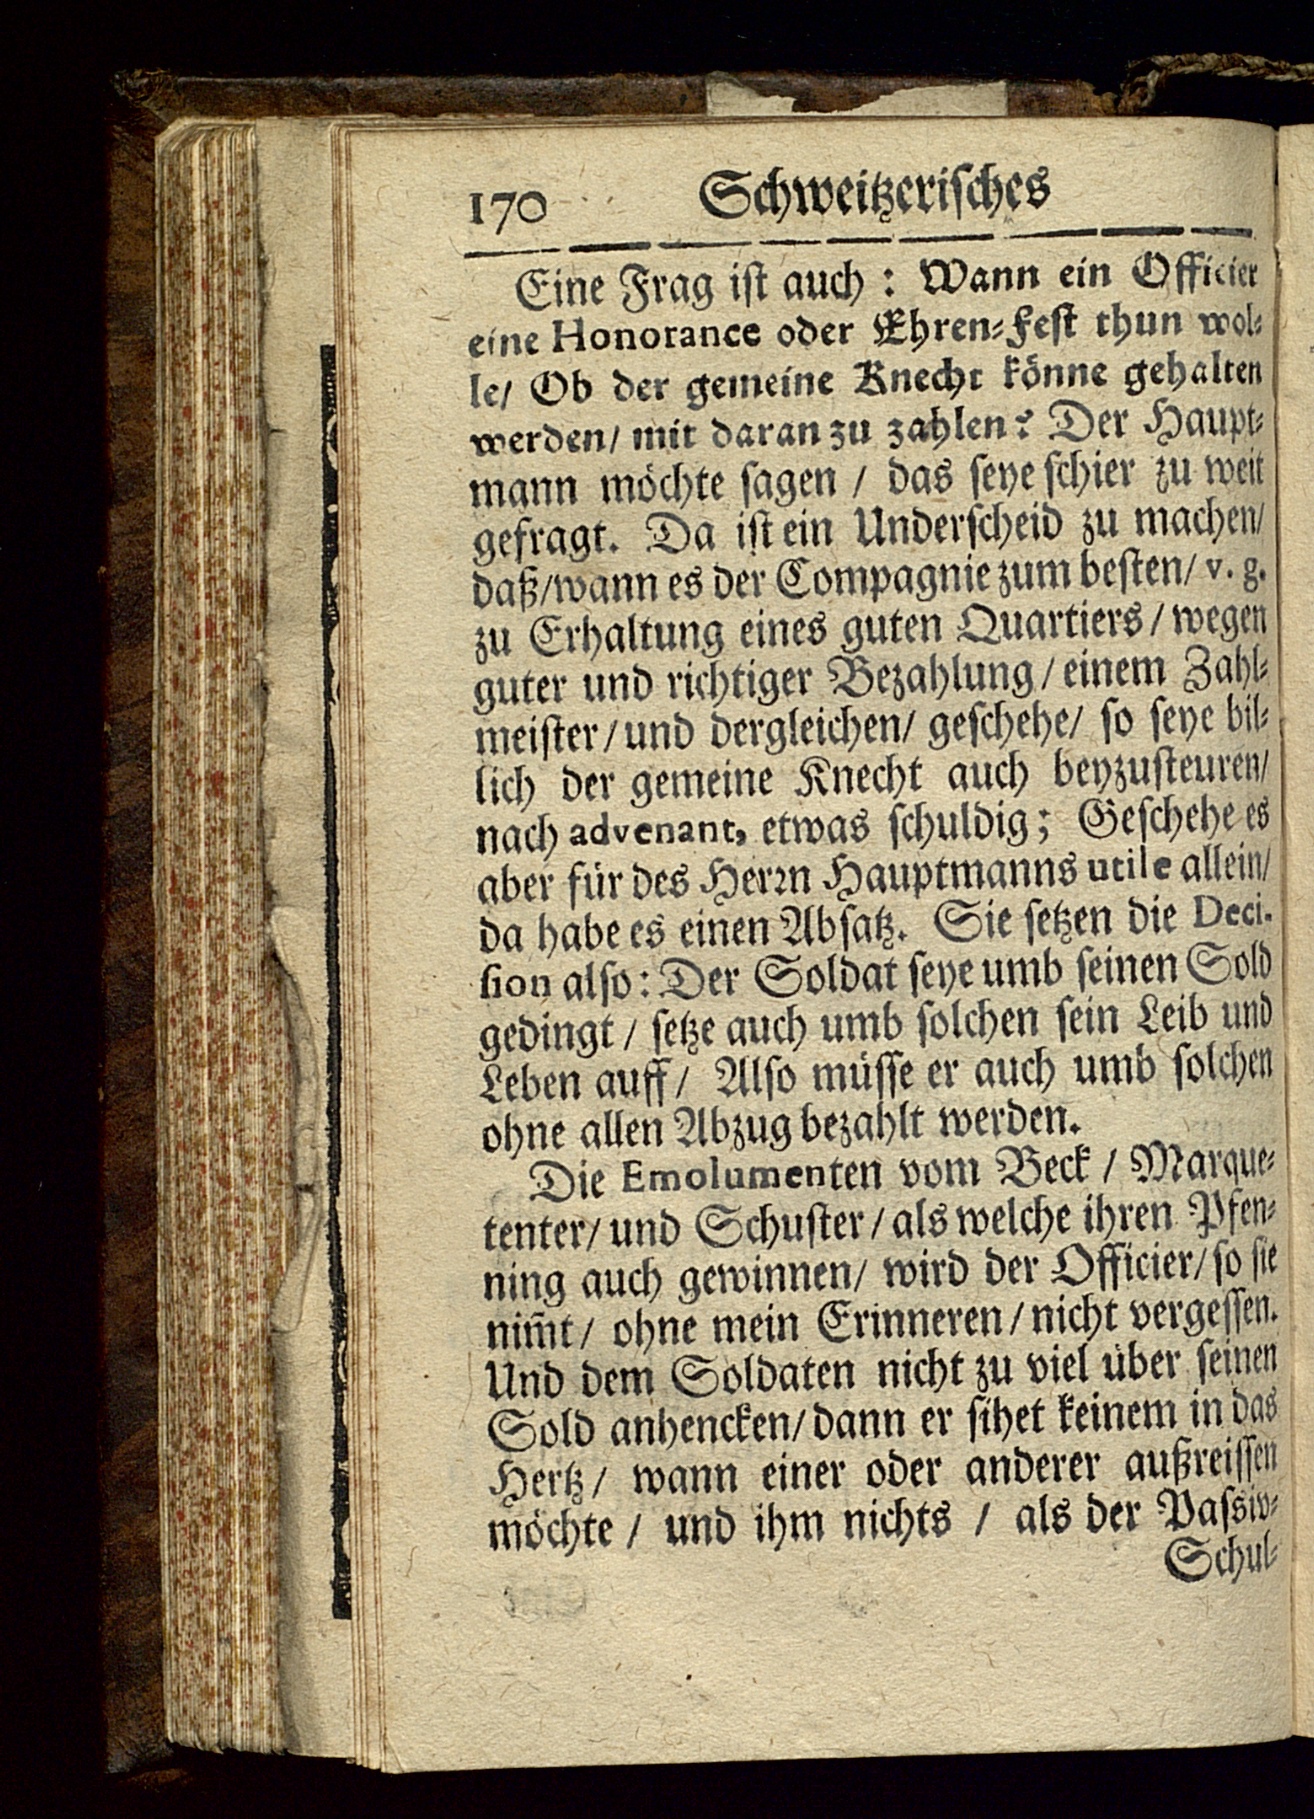 170 Schweitzerisches
Eine Frag ist auch : Wann ein Officier
eine Honorance oder Ehren-Fest thun wol-
le/ Ob der gemeine Knecht könne gehalten
werden/ mit daran zu zahlen? Der Haupt-
mann möchte sagen / das seye schier zu weit
gefragt. Da ist ein Underscheid zu machen/
daß/wann es der Compagnie zum besten/ v. g.
zu Erhaltung eines guten Quartiers / wegen
guter und richtiger Bezahlung / einem Zahl-
meister / und dergleichen/ geschehe/ so seye bil-
lich der gemeine Knecht auch beyzusteuren/
nach advenant, etwas schuldig; Geschehe es
aber für des Herrn Hauptmanns utile allein/
da habe es einen Absatz. Sie setzen die Deci-
sion also: Der Soldat seye umb seinen Sold
gedingt / setze auch umb solchen sein Leib und
Leben auff / Also müsse er auch umb solchen
ohne allen Abzug bezahlt werden.
Die Emolumenten vom Beck / Marque-
tenter/ und Schuster / als welche ihren Pfen-
ning auch gewinnen/ wird der Officier/ so sie
nim̄t / ohne mein Erinneren / nicht vergessen.
Und dem Soldaten nicht zu viel über seinen
Sold anhencken/ dann er sihet keinem in das
Hertz / wann einer oder anderer außreissen
möchte / und ihm nichts / als der Passiv-
Schul-